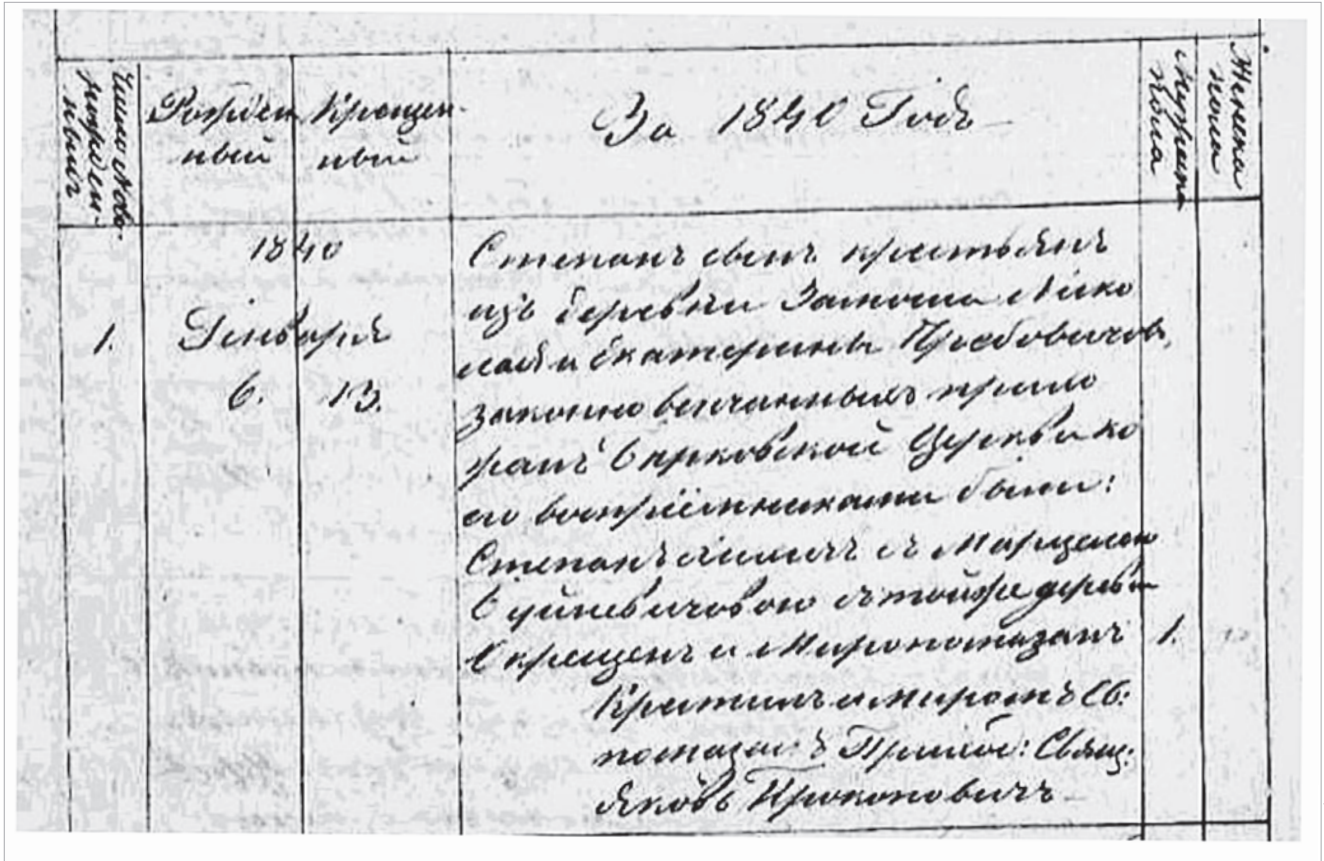 Число ново-
рожден-
ныхъ
Рожден
ный
Крещен-
ный
За 1840 Годъ
Мужеска
пола
Женска
пола
1840
1.
Генваря
6. 13.
Степанъ сынъ крестьянъ
изъ деревни Замоша Нико
лая и Екатерины
законно венчанныхъ прихо
жанъ Церкви ко
его воспріемниками были:
Степанъ съ
съ тойже деревни
Окрещенъ и Миропомазанъ 1.
Крестилъ и миромъ Св:
помазалъ Прихо: Свящ:
Яковъ Прокоповичъ